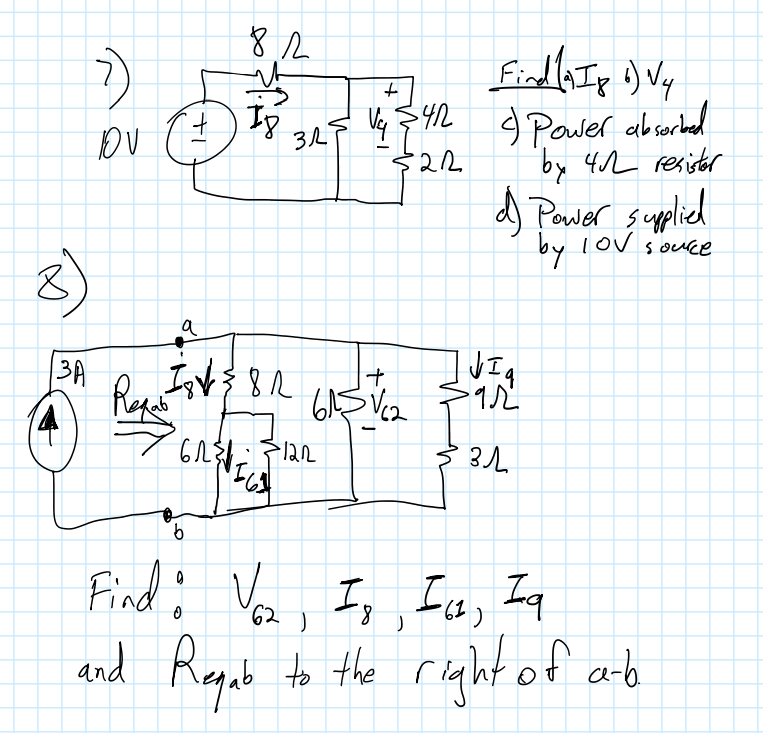 7)
8 Ω
I8
10V
+
-
3Ω
+
V4
-
4Ω
2Ω
Find (a) I8 b) V4
c) Power absorbed
by 4Ω resistor
d) Power supplied
by 10V source
8)
a
3A
Reqab
I8
8 Ω
6Ω
I61
12Ω
6Ω
+
V62
-
I9
9Ω
3Ω
b
Find: V62, I8, I61, I9
and Reqab to the right of a-b.